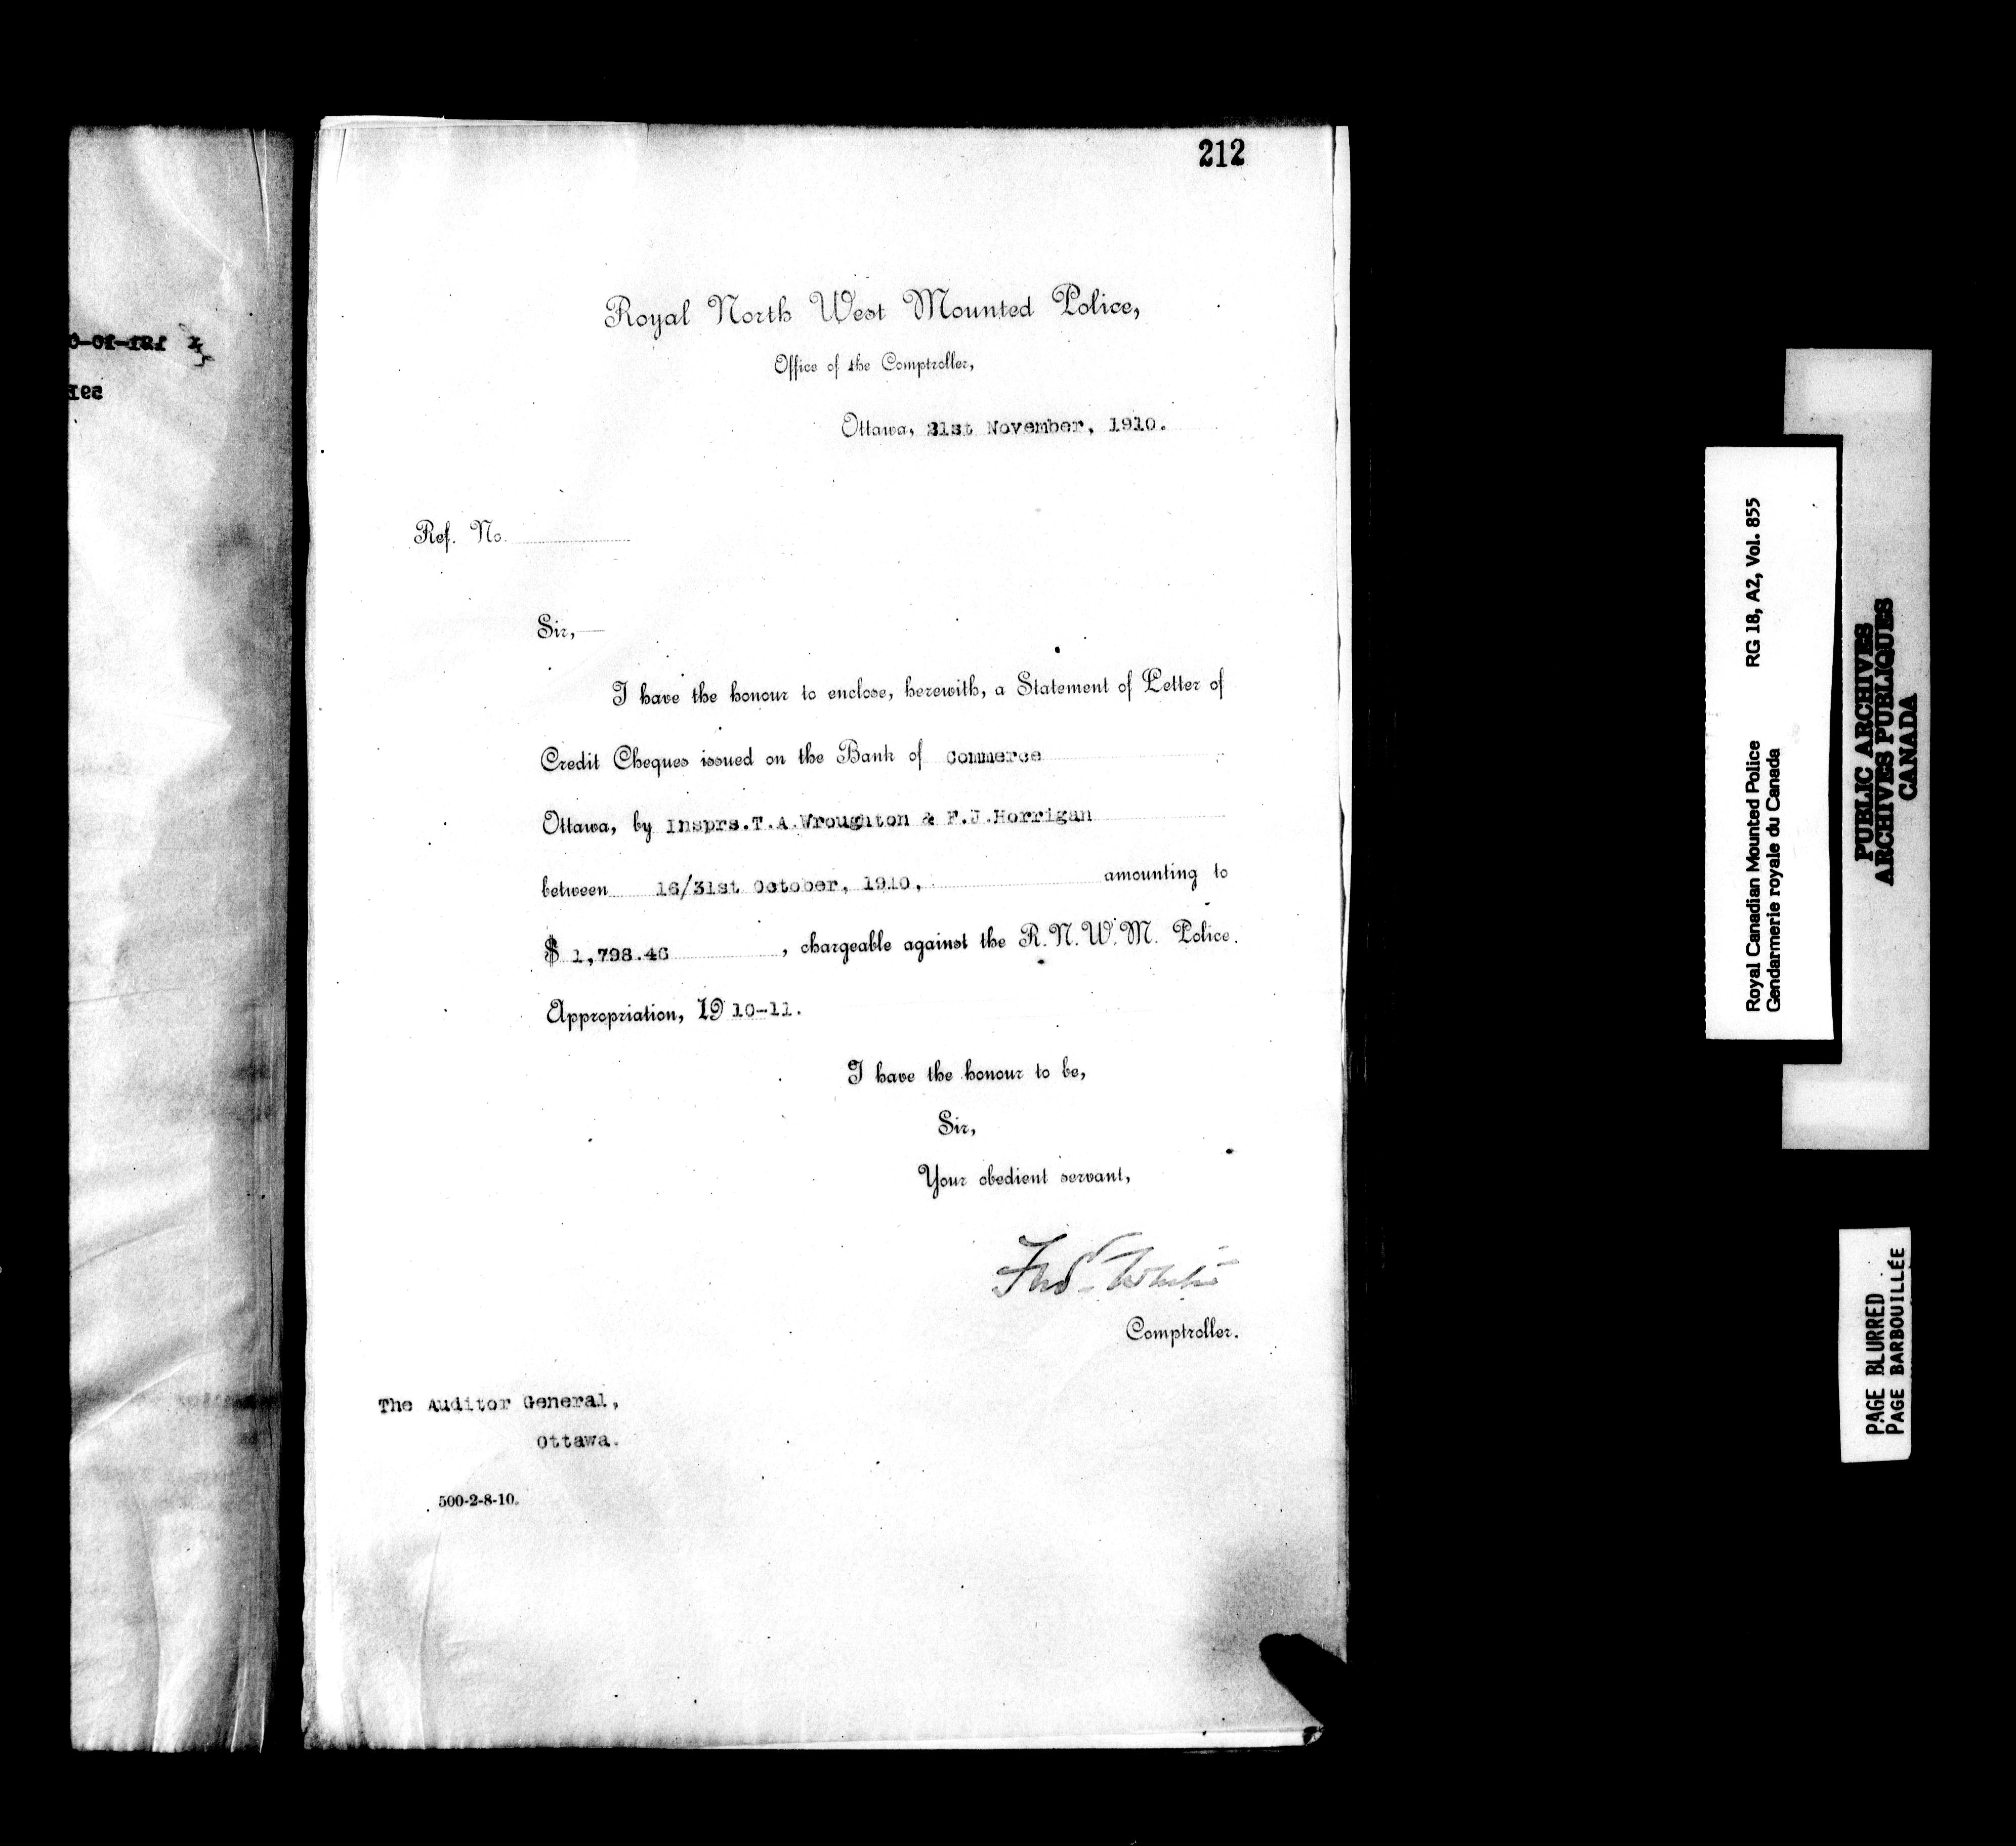 212
Royal North West Mounted Police,
Office of the Comptroller,
Ottawa, 21st November, 1910.
Ref. No.
Sir,—
I have the honour to enclose, herewith, a Statement of Letter of
Credit Cheques issued on the Bank of Commerce
Ottawa, by Insprs.T.A.Wroughton & F.J.Horrigan
between 16/31st October, 1910, amounting to
$ 1,798.46 , chargeable against the R.N.W.M. Police.
Appropriation, 1910-11.
I have the honour to be,
Sir,
Your obedient servant,
Fred White
Comptroller.
The Auditor General,
Ottawa.
500-2-8-10.
Royal Canadian Mounted Police RG 18, A2, Vol. 855
Gendarmerie royale du Canada
PUBLIC ARCHIVES
ARCHIVES PUBLIQUES
CANADA
PAGE BLURRED
PAGE BARBOUILLÉE